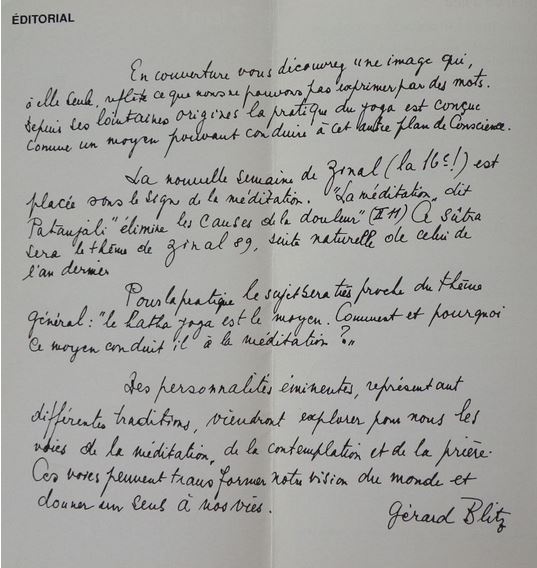 ÉDITORIAL
En couverture vous découvrez une image qui,
à elle seule, reflète ce que nous ne pouvons pas exprimer par des mots.
Depuis ses lointaines origines la pratique du yoga est conçue
comme un moyen pouvant conduire à cet autre plan de Conscience.
La nouvelle semaine de Zinal (la 16e!) est
placée sous le signe de la méditation. "La méditation, dit
Patanjali "élimine les causes de la douleur" (II 11) Ce sûtra
sera le thème de Zinal 89, suite naturelle de celui de
l'an dernier
Pour la pratique le sujet sera très proche du thème
général: "le hatha yoga est le moyen. Comment et pourquoi
ce moyen conduit il à la méditation?"
Des personnalités éminentes, représentant
différentes traditions, viendront explorer pour nous les
voies de la méditation, de la contemplation et de la prière.
Ces voies peuvent transformer notre vision du monde et
donner un sens à nos vies.
Gérard Blitz